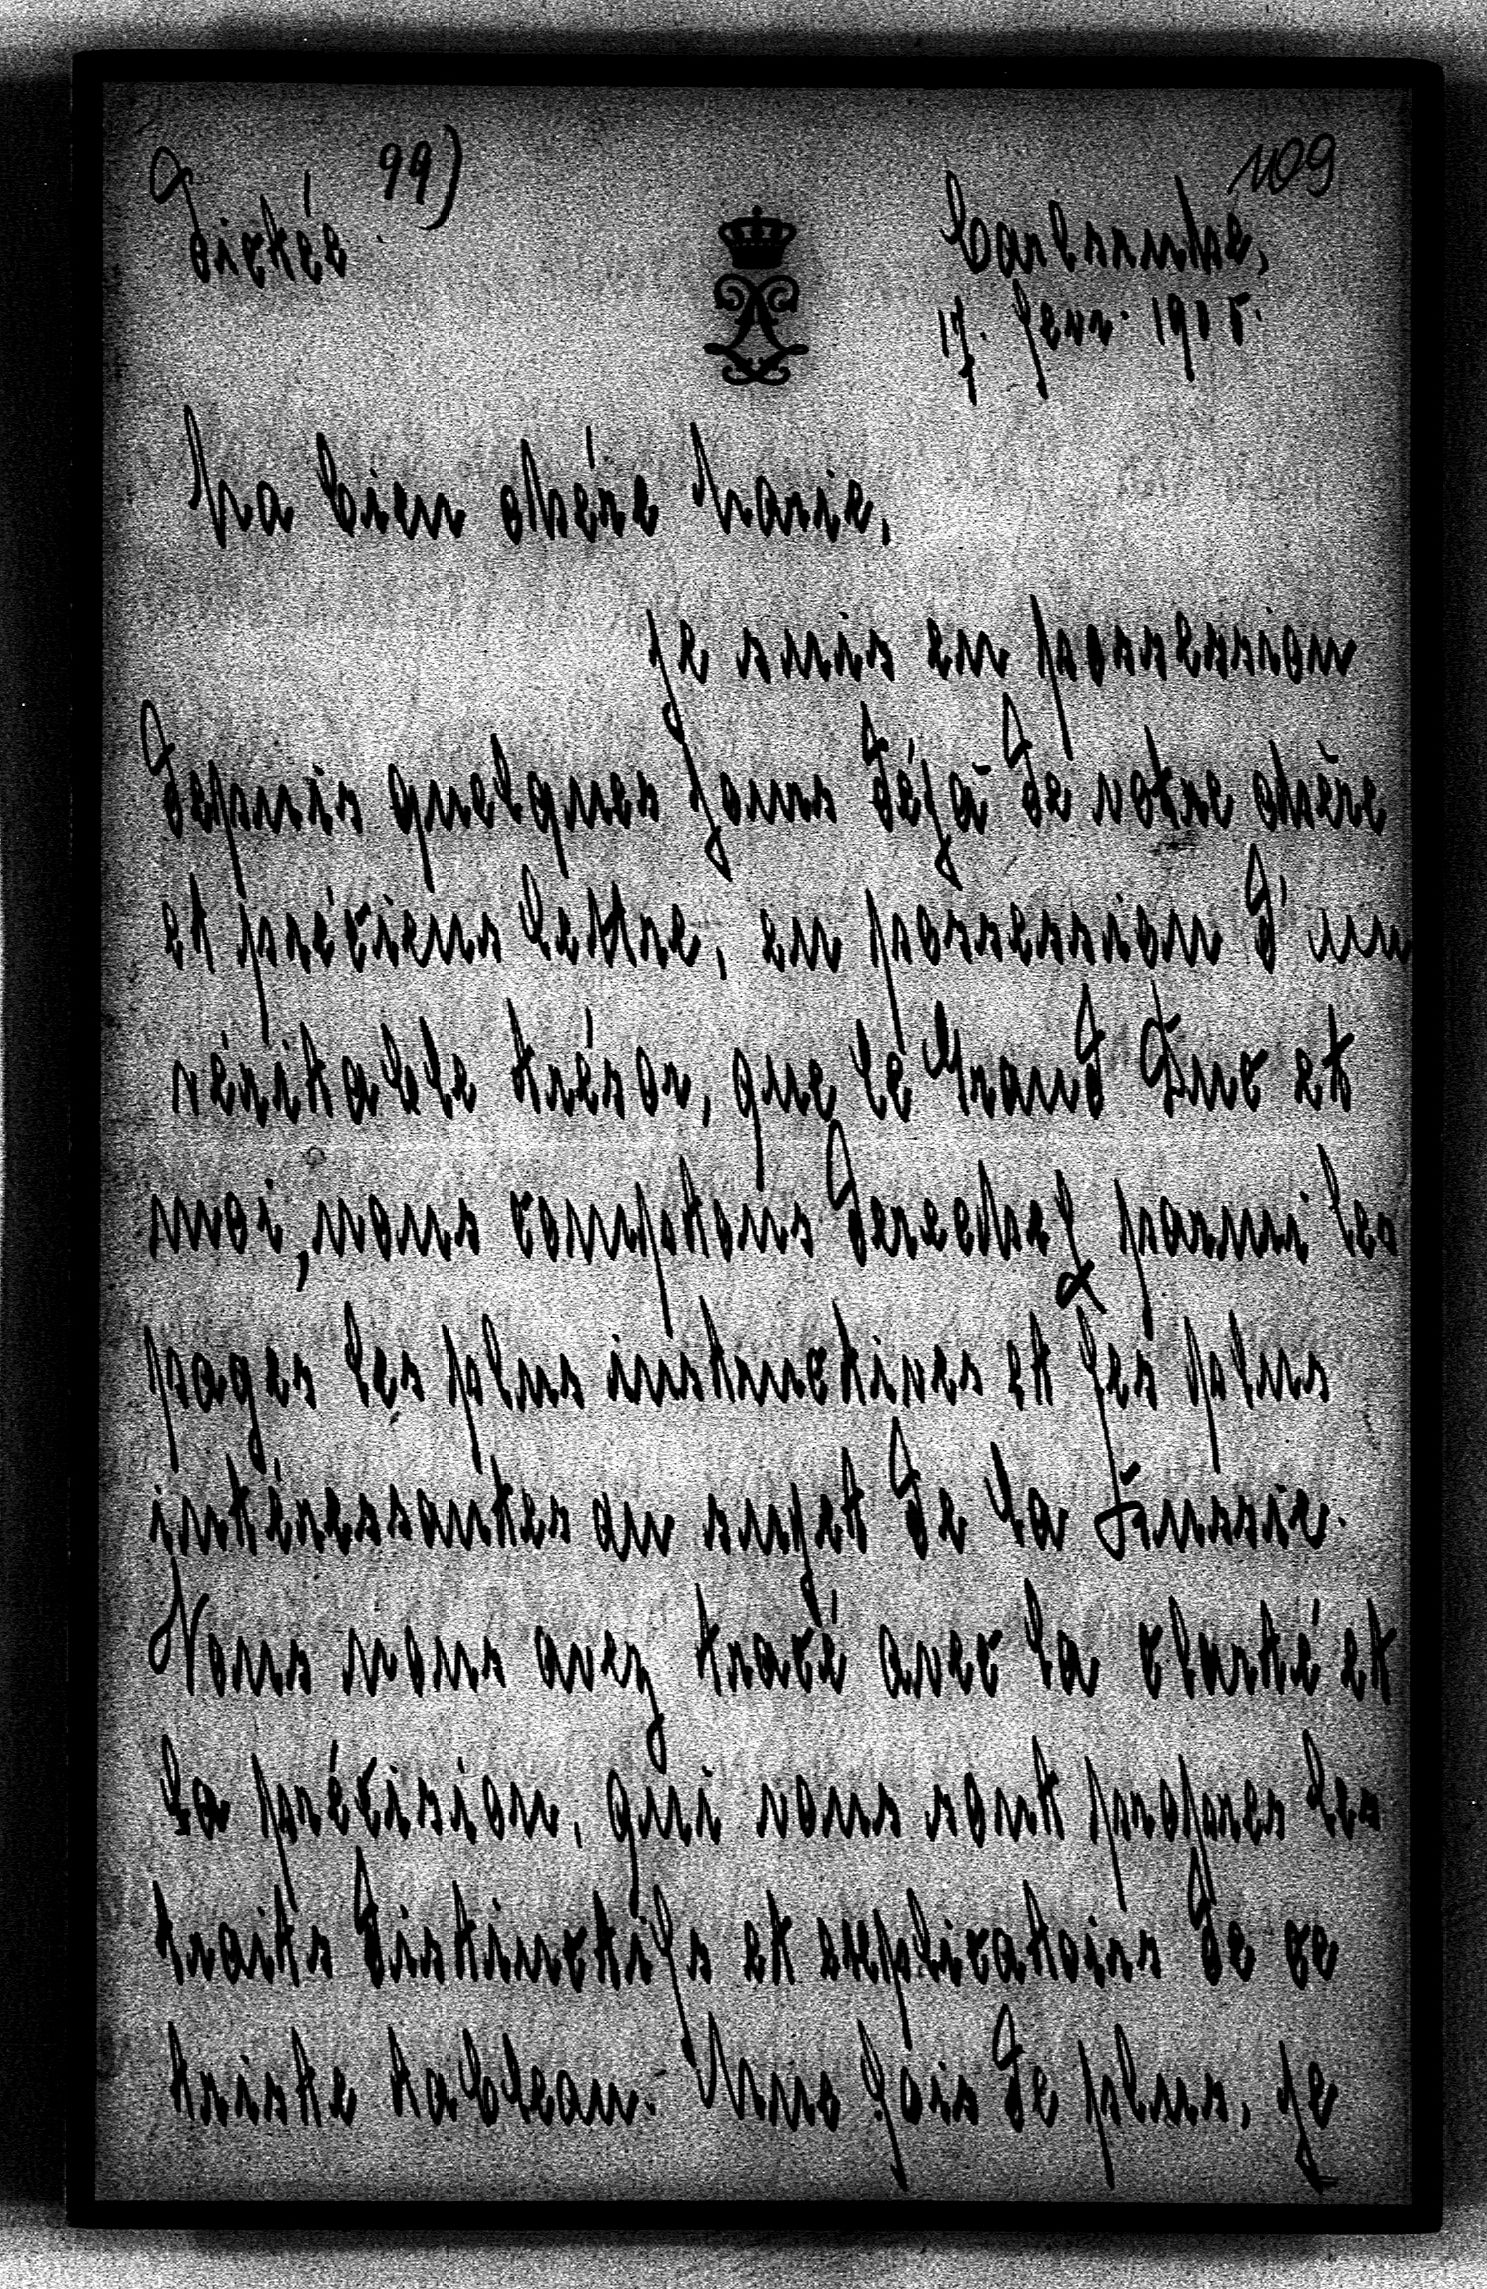 99)
109
Dictée
Carlsruhe,
17. Janv. 1905.
Ma bien chère Marie,
Je suis en possession
depuis quelques jours déjà de votre chère
et précieus lettre, en possession d'un
véritable trésor, que le Grand Duc et
moi, nous comptons derechef parmi les
pages les plus instructives et les plus
intéressantes au sujet de la Russie.
Vous nous avez tracé avec la clarté et
la précision, qui vous sont propres les
traits distinctifs et explicatoirs de ce
triste tableau. Une fois de plus, je